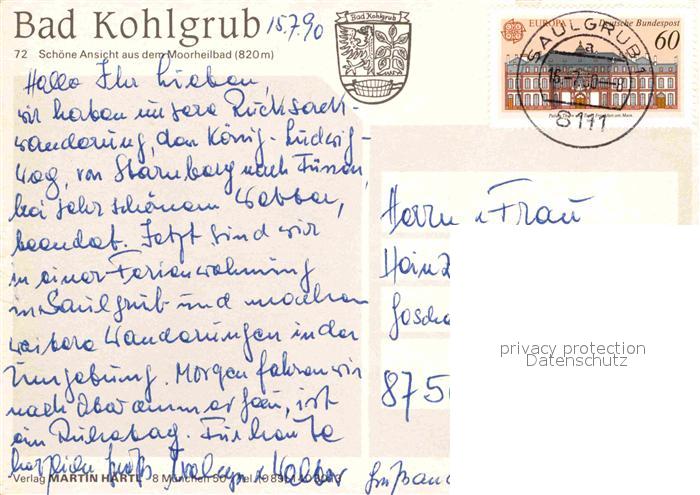 Bad Kohlgrub 15.7.90
72 Schöne Ansicht aus dem Moorheilbad (820 m)
Bad Kohlgrub
EUROPA Deutsche Bundespost
60
SAULGRUB 1
a
16.-7.90.-8
8111
Hallo Ihr Lieben,
wir haben unsere Rucksack-
wanderung, den König-Ludwig-
Weg, von Starnberg nach Füssen,
bei sehr schönem Wetter,
beendet. Jetzt sind wir
in einer Ferienwohnung
in Saulgrub und machen
weitere Wanderungen in der
Umgebung. Morgen fahren wir
nach Oberammergau, ist
ein Ruhetag. Für heute
herzliche Grüße
Walter
Herrn u Frau
Heinz
875
privacy protection
Datenschutz
Verlag MARTIN HARTL 8 München 50